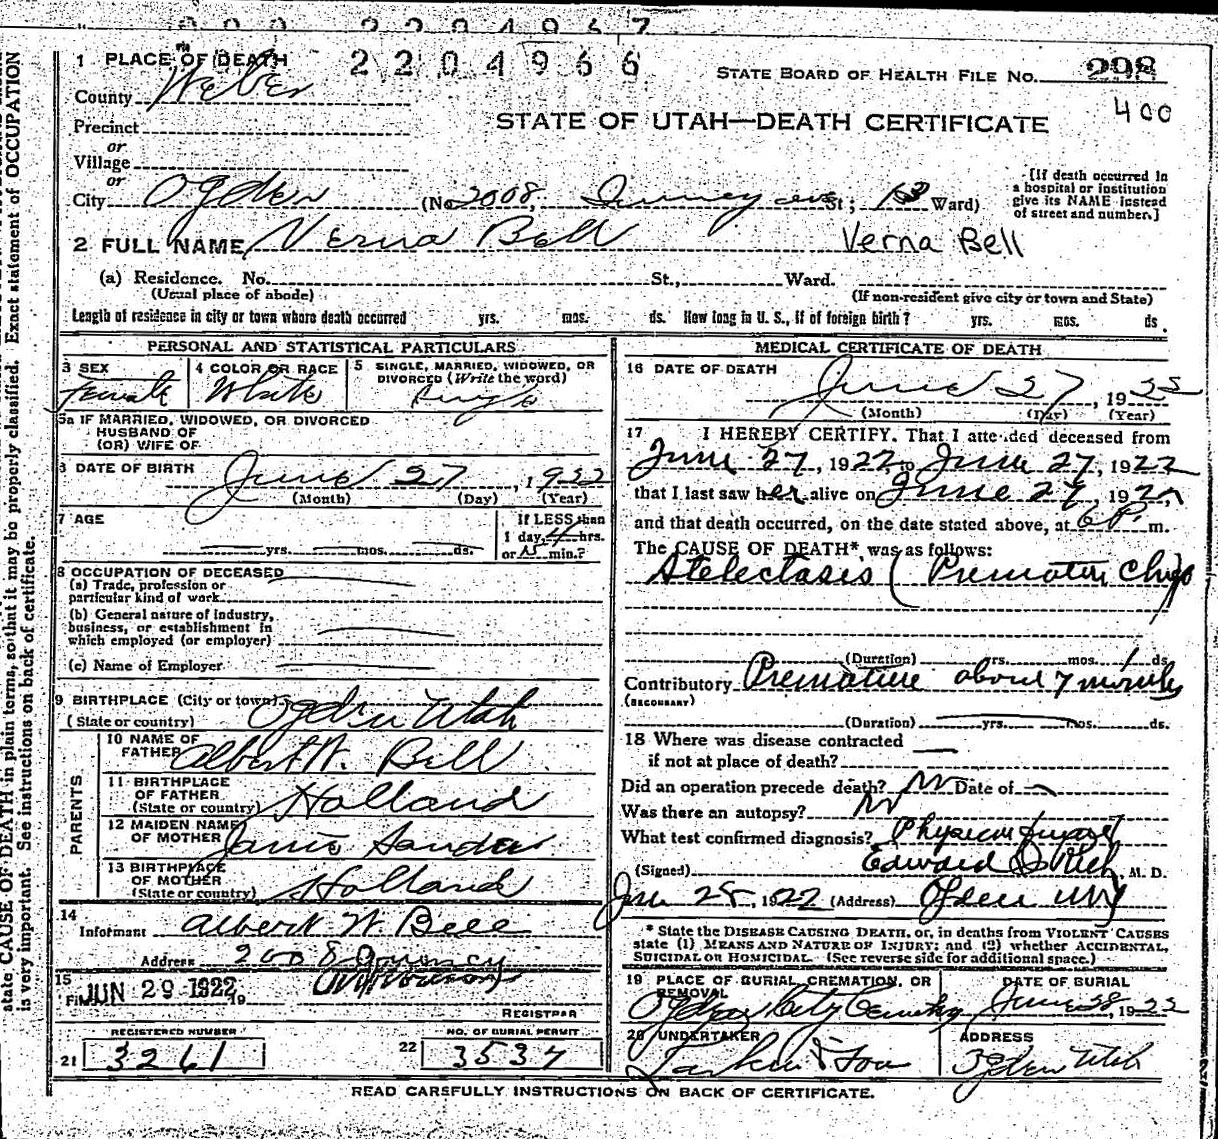 2204967
1 PLACE OF DEATH 2204966 STATE BOARD OF HEALTH FILE No. 298
County Weber 400
Precinct
STATE OF UTAH—DEATH CERTIFICATE
or
Village
or
City Ogden (No. 2008, Quincy ave St; Ward)
[If death occurred in
a hospital or institution
give its NAME instead
of street and number.]
2 FULL NAME Verna Bell Verna Bell
(a) Residence. No. St., Ward.
(Usual place of abode) (If non-resident give city or town and State)
Length of residence in city or town where death occurred yrs. mos. ds. How long in U. S., if of foreign birth? yrs. mos. ds.
PERSONAL AND STATISTICAL PARTICULARS
3 SEX 4 COLOR OR RACE 5 SINGLE, MARRIED, WIDOWED, OR
DIVORCED (Write the word)
Female White Single
5a IF MARRIED, WIDOWED, OR DIVORCED
HUSBAND OF
(OR) WIFE OF
DATE OF BIRTH June 27, 1922
(Month) (Day) (Year)
7 AGE If LESS than
1 day, 4 hrs.
yrs. mos. ds. or 15 min.?
8 OCCUPATION OF DECEASED
(a) Trade, profession or
particular kind of work
(b) General nature of industry,
business, or establishment in
which employed (or employer)
(c) Name of Employer
9 BIRTHPLACE (City or town) Ogden Utah
(State or country)
PARENTS
10 NAME OF
FATHER Albert W. Bell
11 BIRTHPLACE
OF FATHER
(State or country) Holland
12 MAIDEN NAME
OF MOTHER Janie Sander
13 BIRTHPLACE
OF MOTHER
(State or country) Holland
14
Informant Albert W. Bell
Address 2008 Quincy
15
Filed JUN 29 1922 19
REGISTRAR
REGISTERED NUMBER NO. OF BURIAL PERMIT
21 3261 22 3537
MEDICAL CERTIFICATE OF DEATH
16 DATE OF DEATH
June 27, 1922
(Month) (Day) (Year)
17 I HEREBY CERTIFY, That I attended deceased from
June 27, 1922 to June 27, 1922
that I last saw her alive on June 27, 192
and that death occurred, on the date stated above, at 6 P. m.
The CAUSE OF DEATH*, was as follows:
Atelectasis (Premature
(Duration) yrs. mos. 1 ds.
Contributory Premature about 7 months
(SECONDARY)
(Duration) yrs. mos. ds.
18 Where was disease contracted
if not at place of death?
Did an operation precede death? No Date of
Was there an autopsy? No
What test confirmed diagnosis? Physical
(Signed) Edward I Rich, M. D.
Jun 28, 1922 (Address) Ogden Utah
* State the DISEASE CAUSING DEATH, or, in deaths from VIOLENT CAUSES
state (1) MEANS AND NATURE OF INJURY; and (2) whether ACCIDENTAL,
SUICIDAL OR HOMICIDAL. (See reverse side for additional space.)
19 PLACE OF BURIAL, CREMATION, OR DATE OF BURIAL
REMOVAL
Ogden City Cemetery June 28, 1922
20 UNDERTAKER ADDRESS
Larkin & Son Ogden Utah
READ CAREFULLY INSTRUCTIONS ON BACK OF CERTIFICATE.
state CAUSE OF DEATH in plain terms, so that it may be properly classified. Exact statement of OCCUPATION
is very important. See instructions on back of certificate.